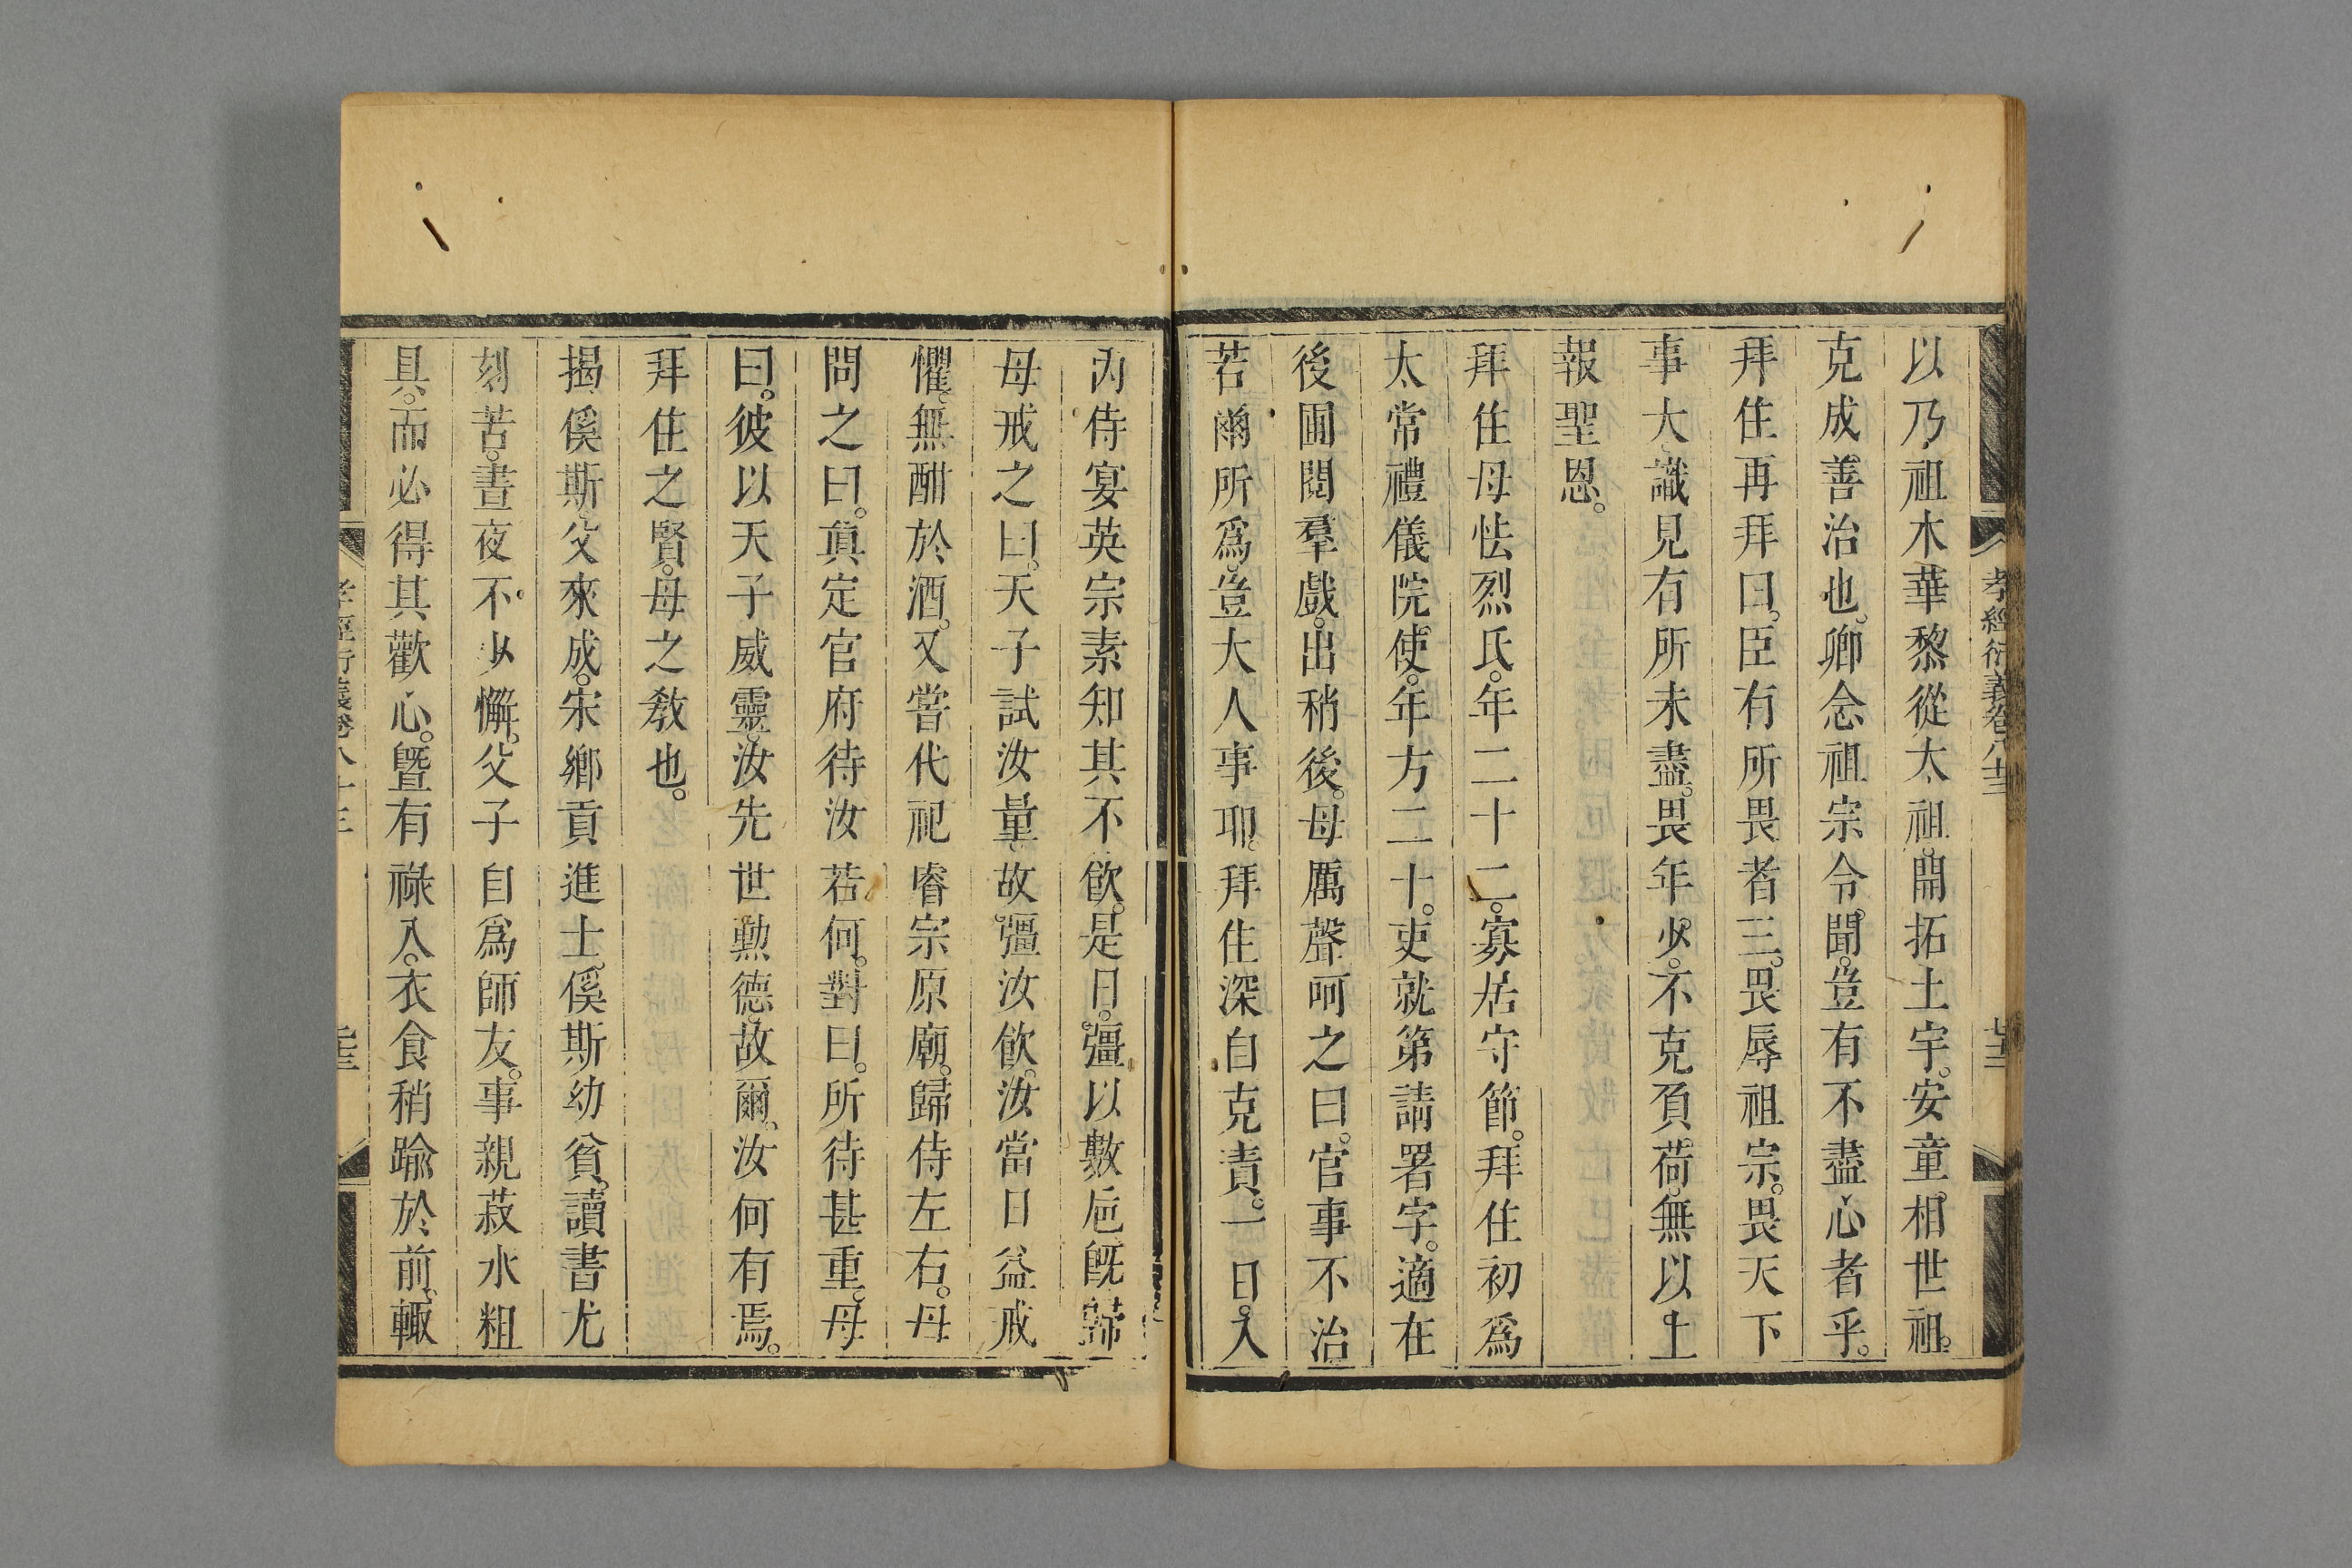 孝經衍義卷八十三
以乃祖木華黎從太祖開拓土宇。安童相世祖。
克成善治也。卿念祖宗令聞。豈有不盡心者乎。
拜住再拜曰。臣有所畏者三。畏辱祖宗。畏天下
事大識見有所未盡。畏年少。不克負荷。無以上
報聖恩。
拜住母怯烈氏。年二十二。寡居守節。拜住初爲
太常禮儀院使。年方二十。吏就第請署字。適在
後圃閱羣戲。出稍後。母厲聲呵之曰。官事不治
若爾所爲。豈大人事耶。拜住深自克責。一日。入
內侍宴英宗素知其不飲。是日。彊以數巵旣歸
母戒之曰。天子試汝量。故彊汝飲。汝當日益戒
懼。無酣於酒。又嘗代祀睿宗原廟。歸侍左右。母
問之曰。眞定官府待汝若何。對曰。所待甚重。母
曰。彼以天子威靈。汝先世勳德。故爾。汝何有焉。
拜住之賢。母之教也。
揭傒斯。父來成。宋鄉貢進士。傒斯幼貧。讀書尤
刻苦。晝夜不少懈。父子自爲師友。事親菽水粗
具。而必得其歡心。曁有祿入。衣食稍踰於前。輒
孝經衍義卷八十三